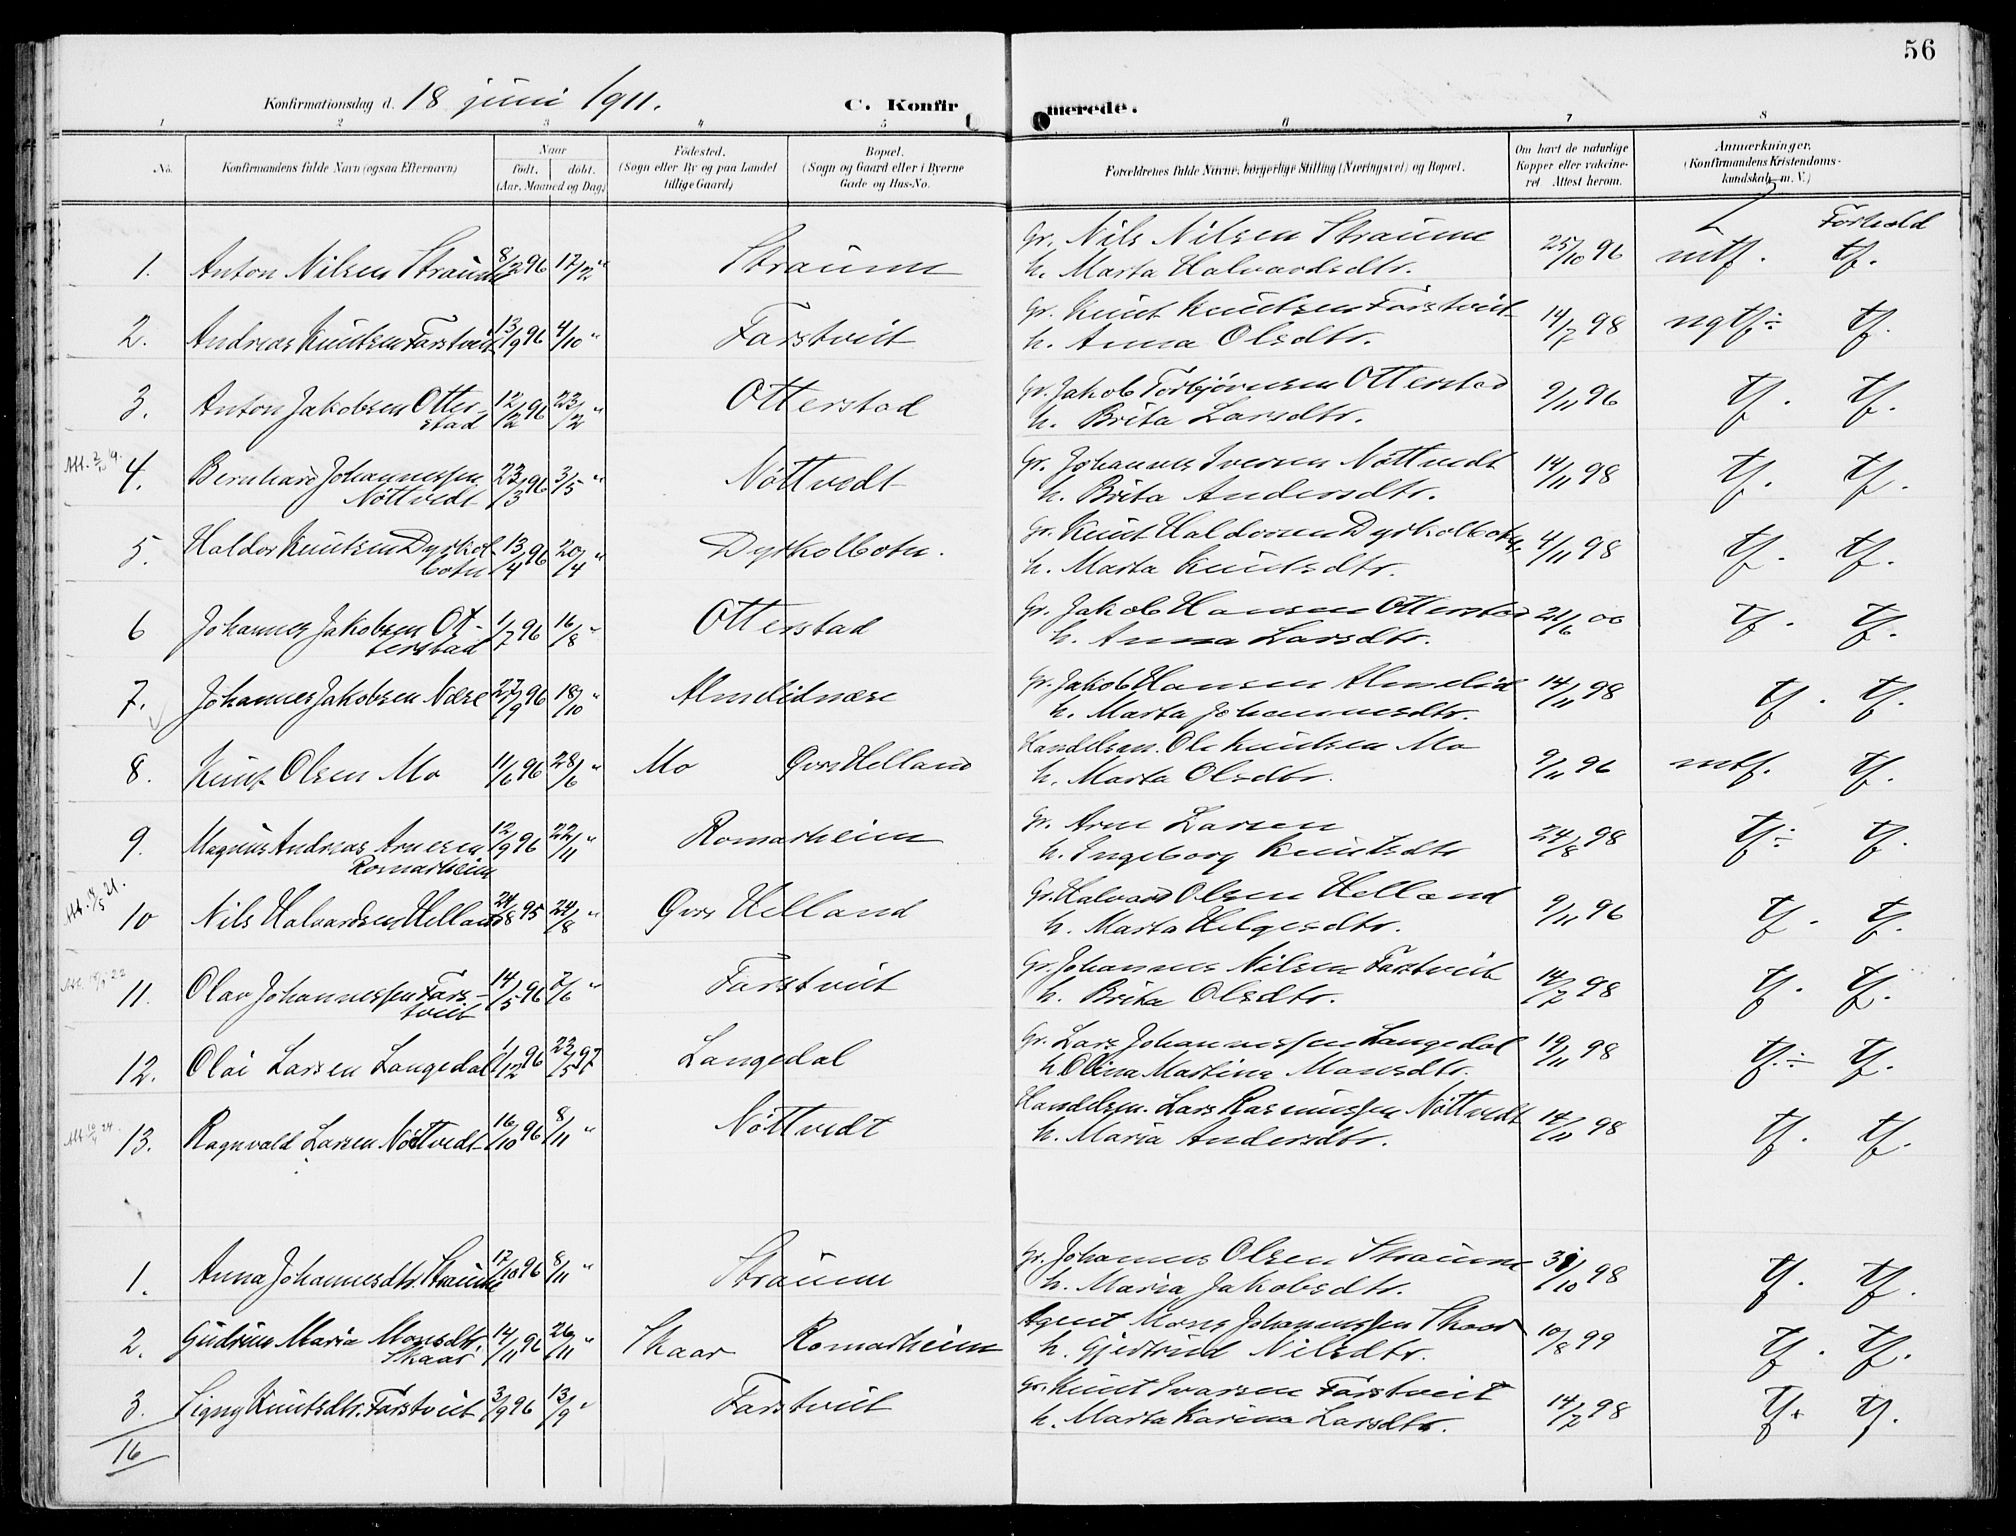 56
Konfirmationsdag d. 18 juni 1911. C. Konfirmerede.
1 2 3 4 5 6 7 8
No. Konfirmandens fulde Navn (ogsaa Efternavn) Naar født. døbt. (Aar, Maaned og Dag) Fødested. (Sogn eller By og paa Landet tillige Gaard) Bopæl. (Sogn og Gaard eller i Byerne Gade og Hus-No. Forældrenes fulde Navne, borgerlige Stilling (Næringsvei) og Bopæl. Om havt de naturlige Kopper eller vakcineret. Attest herom. Anmærkninger. (Konfirmandens Kristendomskundskab m. V.)
Forhold
1. Anton Nilsen Straume 8/2 96 17/2 " Straume Gr. Nils Nilsen Straume 25/10 96 mtf. tf.
h. Marta Halvardsdtr.
2. Andreas Knutsen Farstveit 13/9 96 4/10 " Farstveit Gr. Knut Knutsen Farstveit 14/7 98 ngtf÷ tf.
h. Anna Olsdtr.
3. Anton Jakobsen Otterstad 12/2 96 23/2 " Otterstad Gr. Jakob Torbjørnsen Otterstad 9/11 96 tf. tf.
h. Brita Larsdtr.
4. Bernhard Johannessen Nöttvedt 23/3 96 3/5 " Nöttvedt Gr. Johannes Iversen Nöttvedt 14/11 98 tf. tf.
h. Brita Andersdtr.
5. Haldor Knutsen Dyrkolbotn 13/4 96 20/4 " Dyrkolbotn. Gr. Knut Haldorsen Dyrkolbotn 4/11 98 tf. tf.
h. Marta Knutsdtr.
6 Johannes Jakobsen Otterstad 1/7 96 16/8 " Otterstad Gr. Jakob Hansen Otterstad 21/6 00 tf. tf.
h. Anna Larsdtr.
7. Johannes Jakobsen Nese 27/9 96 18/10 " Almelidnese Gr. Jakob Hansen Almelid 14/11 98 tf. tf.
h. Marta Johannesdtr.
8. Knut Olsen Mo 11/6 96 28/6 " Mo Øvre Helland Handelsm. Ole Knutsen Mo 9/11 96 mtf. tf.
h. Marta Olsdtr.
9. Magnus Andreas Arnesen Romarheim 12/9 96 22/11 " Romarheim Gr. Arne Larsen 24/8 98 tf÷ tf.
h. Ingeborg Knutsdtr
10 Nils Halvardsen Helland 24/8 95 24/8 " Øvre Helland Gr. Halvard Olsen Helland 9/11 96 tf. tf.
h. Marta Helgesdtr.
11. Olav Johannessen Farstveit 14/5 96 7/6 " Farstveit Gr. Johannes Nilsen Farstveit 14/7 98 tf. tf.
h. Brita Olsdtr.
12. Olai Larsen Langedal 1/12 96 23/5 97 Langedal Gr. Lars Johannessen Langedal 19/11 98 tf.÷ tf.
h. Olina Martina Monsdtr.
13. Ragnvald Larsen Nöttvedt 16/10 96 8/11 " Nöttvedt Handelsm. Lars Rasmussen Nöttvedt 14/11 98 tf. tf.
h. Maria Andersdtr.
1. Anna Johannesdtr. Straume 17/10 96 8/11 " Straume Gr. Johannes Olsen Straume 31/10 98 tf. tf.
h. Maria Jakobsdtr.
2. Gudrun Maria Monsdtr. Skaar 14/11 96 26/11 " Skaar Romarheim Agent Mons Johannessen Skaar 10/8 99 tf. tf.
h. Gjertrud Nilsdtr.
3. Signy Knutsdtr. Farstveit 3/9 96 13/9 " Farstveit Gr. Knut Ivarsen Farstveit 14/7 98 tf. tf.
h. Marta Karina Larsdtr.
16